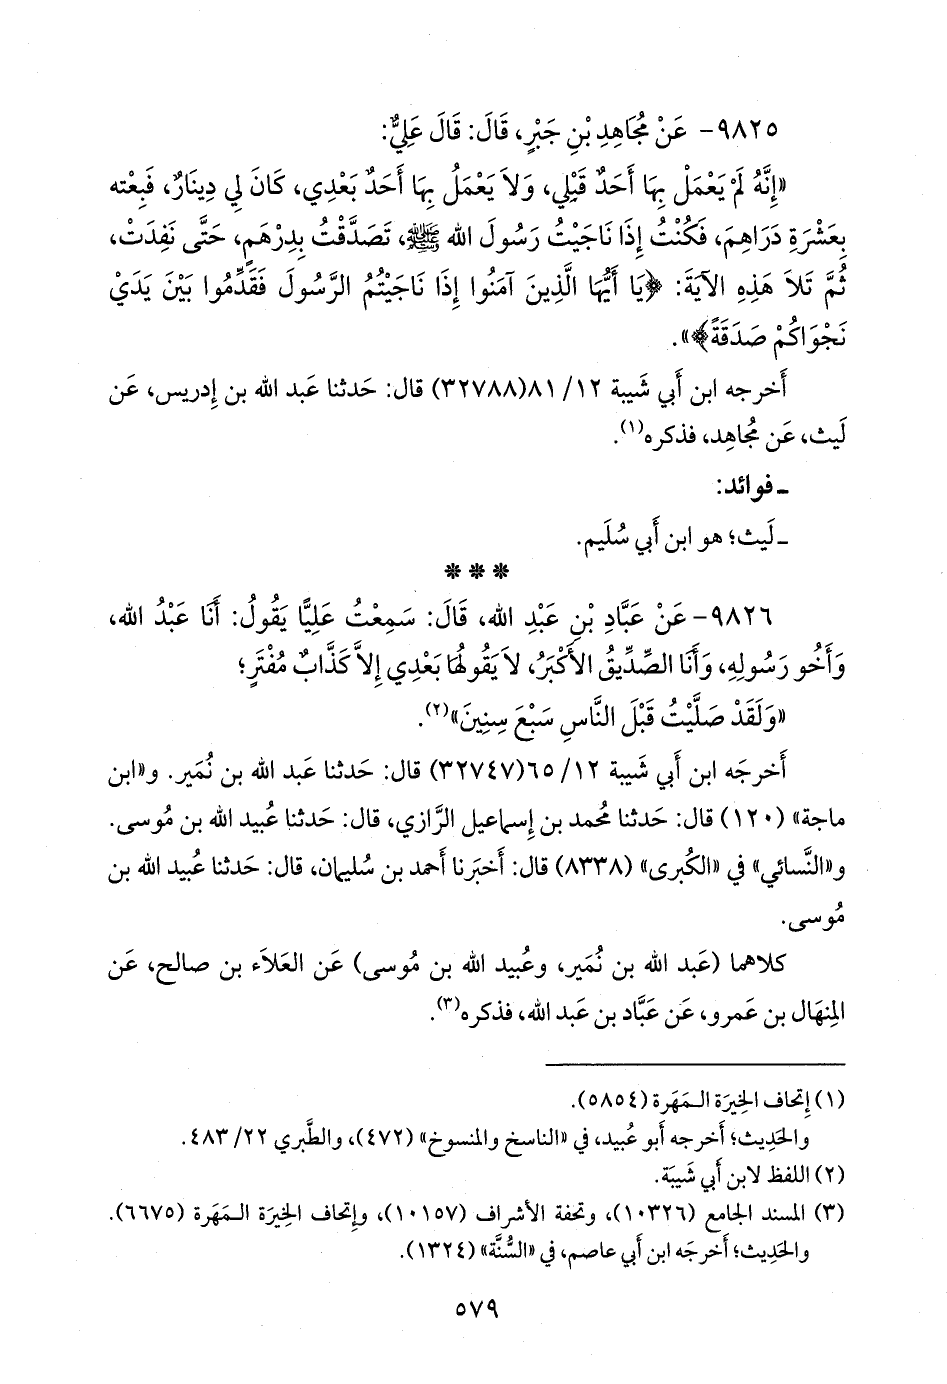 ٩٨٢٥- عَنْ مُجَاهِدِ بْنِ جَبْرٍ، قَالَ: قَالَ عَلِيٌّ:
«إِنَّهُ لَمْ يَعْمَلْ بِهَا أَحَدٌ قَبْلِي، وَلاَ يَعْمَلُ بِهَا أَحَدٌ بَعْدِي، كَانَ لِي دِينَارٌ، فَبِعْته
بِعَشْرَةِ دَرَاهِمَ، فَكُنْتُ إِذَا نَاجَيْتُ رَسُولَ الله ﷺ، تَصَدَّقْتُ بِدِرْهَمٍ، حَتَّى نَفِدَتْ،
ثُمَّ تَلاَ هَذِهِ الآيَةَ: ﴿يَا أَيُّهَا الَّذِينَ آمَنُوا إِذَا نَاجَيْتُمُ الرَّسُولَ فَقَدِّمُوا بَيْنَ يَدَيْ
نَجْوَاكُمْ صَدَقَةً﴾».
أَخرجه ابن أَبي شَيبة ١٢/ ٨١(٣٢٧٨٨) قال: حَدثنا عَبد الله بن إِدريس، عَن
لَيث، عَن مُجاهِد، فذكره(١).
ـ فوائد:
ـ لَيث؛ هو ابن أَبي سُلَيم.
* * *
٩٨٢٦- عَنْ عَبَّادِ بْنِ عَبْدِ الله، قَالَ: سَمِعْتُ عَلِيًّا يَقُولُ: أَنَا عَبْدُ الله،
وَأَخُو رَسُولِهِ، وَأَنَا الصِّدِّيقُ الأَكْبَرُ، لاَ يَقُولُهَا بَعْدِي إِلاَّ كَذَّابٌ مُفْتَرٍ؛
«وَلَقَدْ صَلَّيْتُ قَبْلَ النَّاسِ سَبْعَ سِنِينَ»(٢).
أَخرجَه ابن أَبي شَيبة ١٢/ ٦٥(٣٢٧٤٧) قال: حَدثنا عَبد الله بن نُمَير. و«ابن
ماجة» (١٢٠) قال: حَدثنا مُحمد بن إِسماعيل الرَّازي، قال: حَدثنا عُبيد الله بن مُوسى.
و«النَّسائي» في «الكُبرى» (٨٣٣٨) قال: أَخبَرنا أَحمد بن سُليمان، قال: حَدثنا عُبيد الله بن
مُوسى.
كلاهما (عَبد الله بن نُمَير، وعُبيد الله بن مُوسى) عَن العَلاَء بن صالح، عَن
المِنهَال بن عَمرو، عَن عَبَّاد بن عَبد الله، فذكره(٣).
(١) إِتحاف الخِيرَة الـمَهَرة (٥٨٥٤).
والحَدِيث؛ أَخرجه أَبو عُبيد، في «الناسخ والمنسوخ» (٤٧٢)، والطَّبري ٢٢/ ٤٨٣.
(٢) اللفظ لابن أَبي شَيبَة.
(٣) المسند الجامع (١٠٣٢٦)، وتحفة الأَشراف (١٠١٥٧)، وإِتحاف الخِيرَة الـمَهَرة (٦٦٧٥).
والحَدِيث؛ أَخرجَه ابن أَبي عاصم، في «السُّنَّة» (١٣٢٤).
٥٧٩